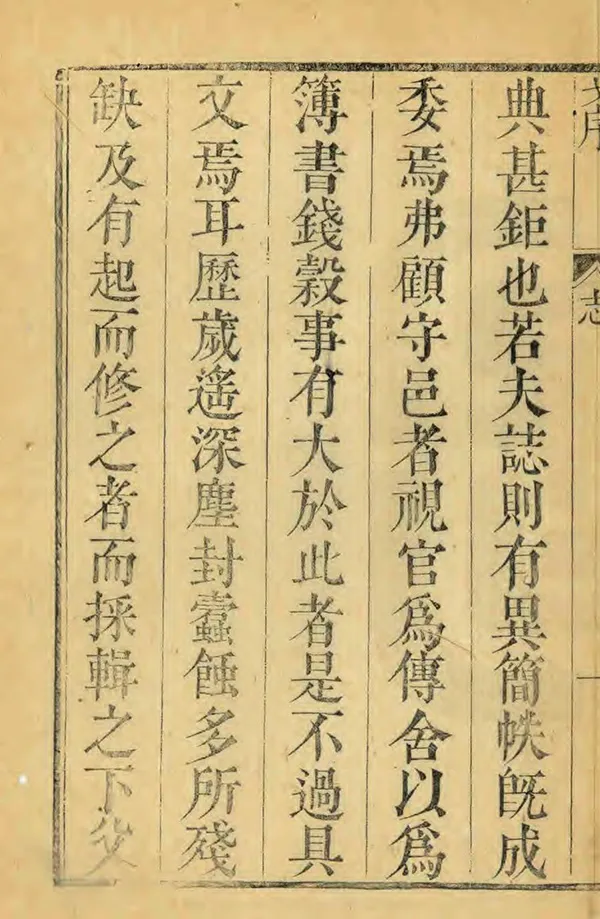 志
一
典甚鉅也若夫誌則有異簡帙旣成
委焉弗顧守邑者視官爲傳舍以爲
簿書錢穀事有大於此者是不過具
文焉耳歷歲遙深塵封蠧蝕多所殘
缺及有起而修之者而採輯之下父